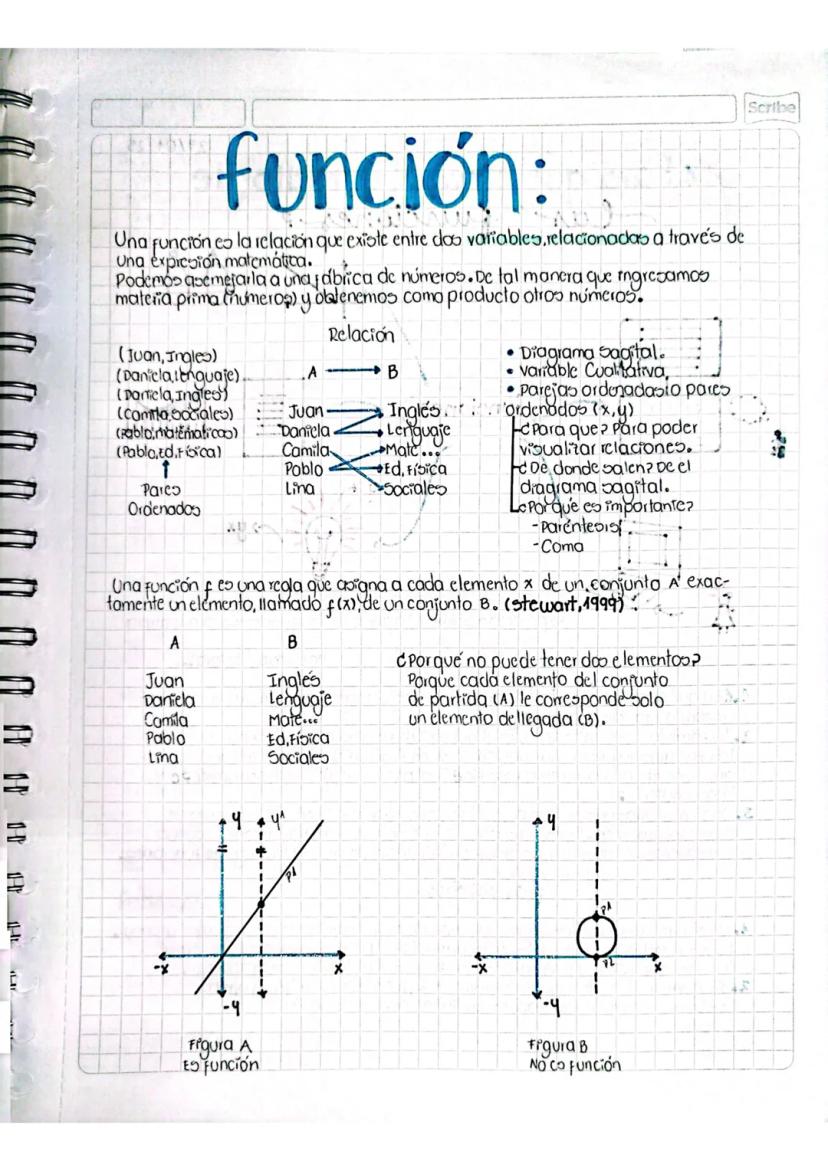 Scribe
función:
Una función es la relación que existe entre dos variables, relacionadas a través de
una expresión matemática.
Podemos asemejarla a una fábrica de números. De tal manera que ingresamos
materia prima (números) y obtenemos como producto otros números.
Relación
(Juan, Ingles)
(Daniela, Lenguaje)
(Daniela, Ingles)
(Camila, Sociales)
(Pablo, Matemáticas)
(Pablo, Ed. Física)
Pares
Ordenados
A B
Juan Inglés
Daniela Lenguaje
Camila Mate...
Pablo Ed, Física
Lina Sociales
• Diagrama Sagital.
• Variable Cualitativa,
• Parejas ordenadas o pares
ordenados (x,y)
¿Para que? Para poder
visualizar relaciones.
¿De donde salen? De el
diagrama sagital.
¿Por qué es importante?
- Paréntesis
- Coma
Una función f es una regla que asigna a cada elemento x de un conjunto A exac-
tamente un elemento, llamado f(x), de un conjunto B. (Stewart, 1999)
A B
Juan Inglés
Daniela Lenguaje
Camila Mate...
Pablo Ed, Física
Lina Sociales
¿Por qué no puede tener dos elementos?
Porque cada elemento del conjunto
de partida (A) le corresponde solo
un elemento de llegada (B).
y y1
p1
-x x
-y
Figura A
Es función
y
p1
p2
-x x
-y
Figura B
No es función